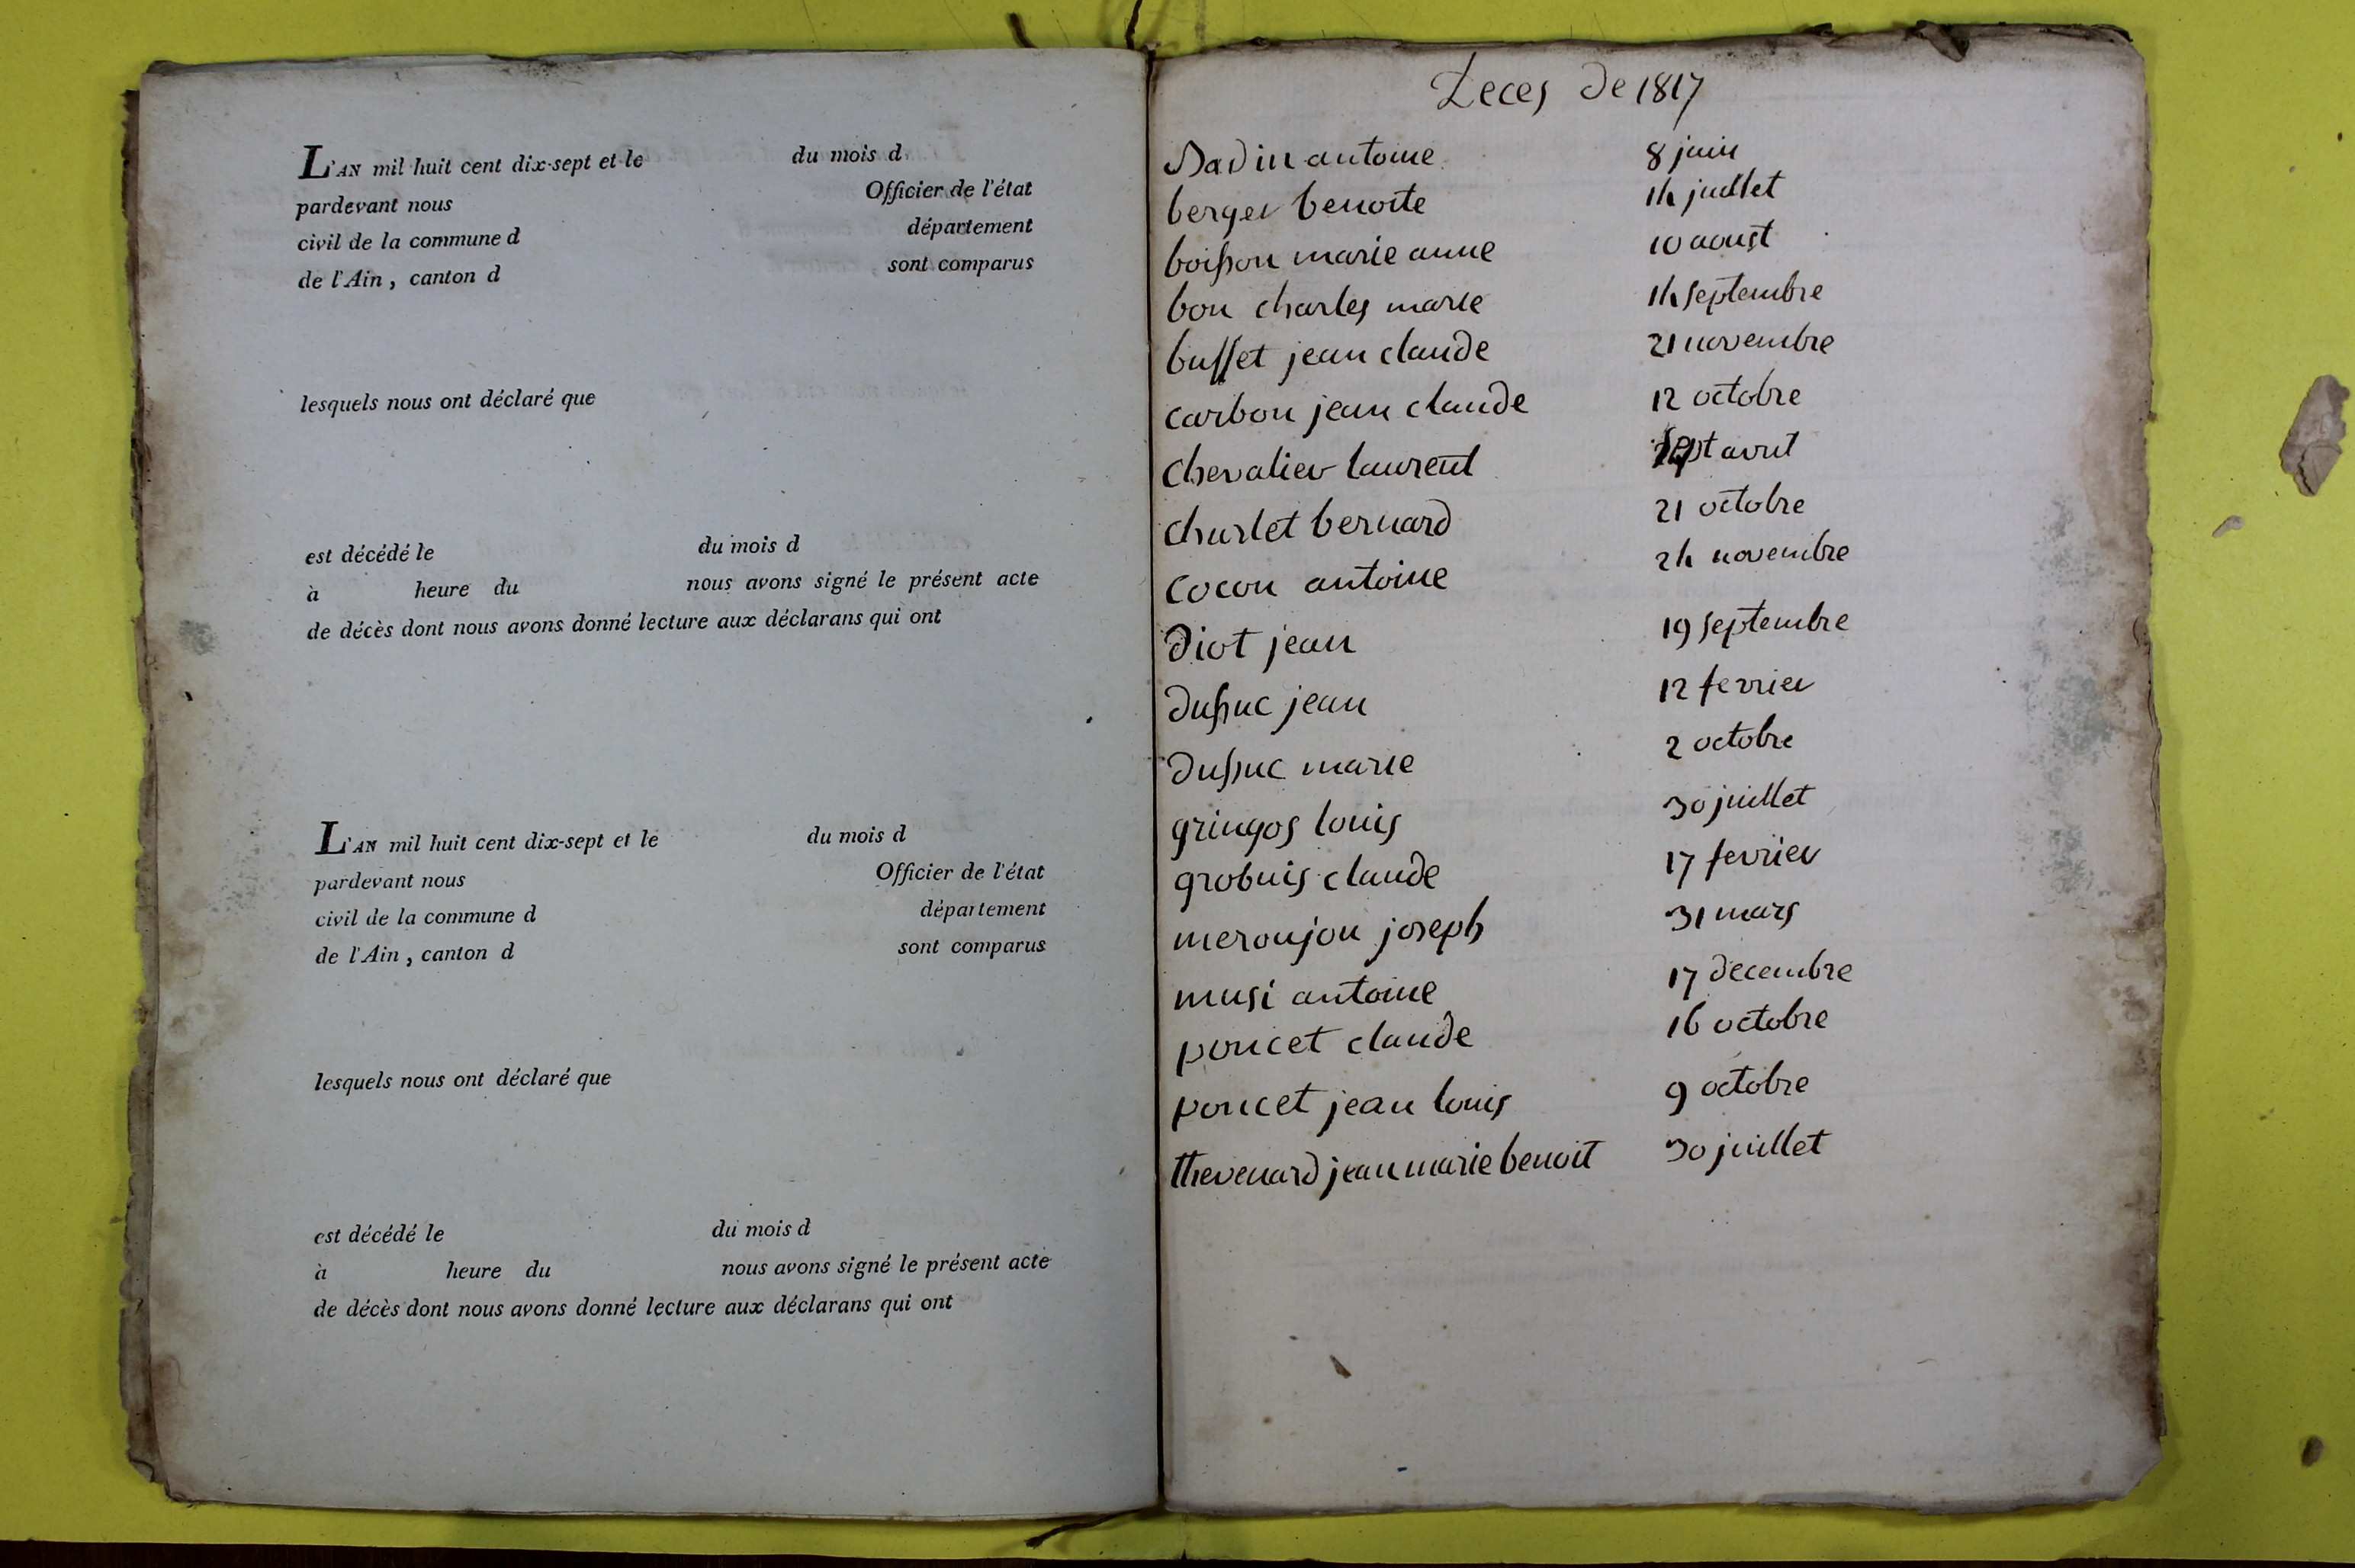 L'AN mil huit cent dix-sept et le du mois d
pardevant nous Officier de l'état
civil de la commune d département
de l'Ain, canton d sont comparus
lesquels nous ont déclaré que
est décédé le du mois d
à heure du nous avons signé le présent acte
de décès dont nous avons donné lecture aux déclarans qui ont
L'AN mil huit cent dix-sept et le du mois d
pardevant nous Officier de l'état
civil de la commune d département
de l'Ain, canton d sont comparus
lesquels nous ont déclaré que
est décédé le du mois d
à heure du nous avons signé le présent acte
de décès dont nous avons donné lecture aux déclarans qui ont
Deces de 1817
antoine 8 juin
berger benoite 14 juillet
boisson marie anne 10 aoust
bon charles marie 14 septembre
buffet jean claude 21 novembre
carbon jean claude 12 octobre
chevalier laurent sept avril
churlet bernard 21 octobre
cocon antoine 24 novembre
diot jean 19 septembre
dussuc jean 12 fevrier
dussuc marie 2 octobre
gringos louis 30 juillet
grobuis claude 17 fevrier
meronjon joseph 31 mars
musi antoine 17 decembre
poncet claude 16 octobre
poncet jean louis 9 octobre
thevenard jean marie benoit 30 juillet